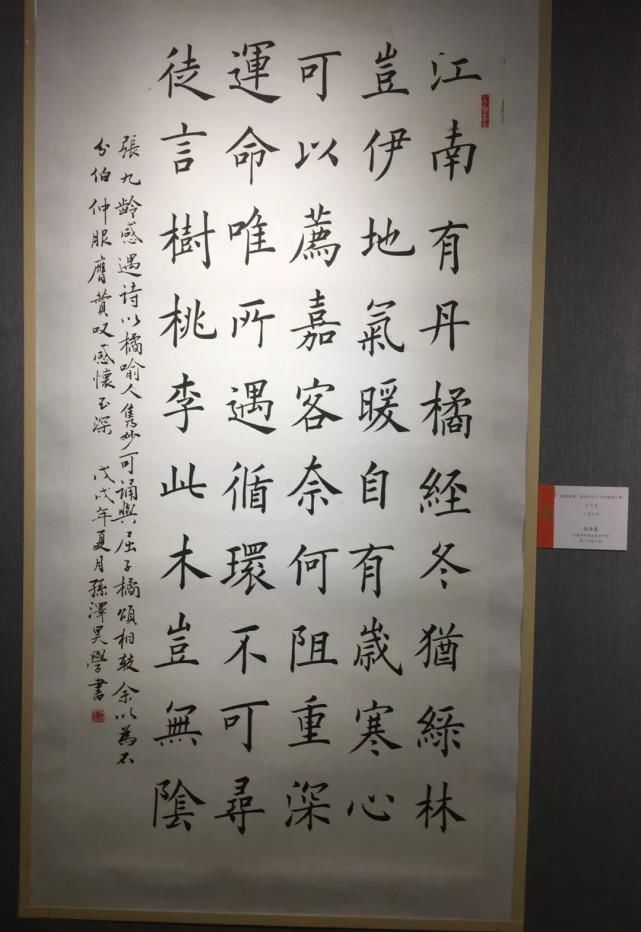 江南有丹橘經冬猶綠林
豈伊地氣暖自有歲寒心
可以薦嘉客奈何阻重深
運命唯所遇循環不可尋
徒言樹桃李此木豈無陰
張九齡感遇诗以橘喻人隽妙可诵與屈子橘頌相較余以為不
分伯仲服膺贊叹感懷至深 戊戌年夏月孫澤昊學書